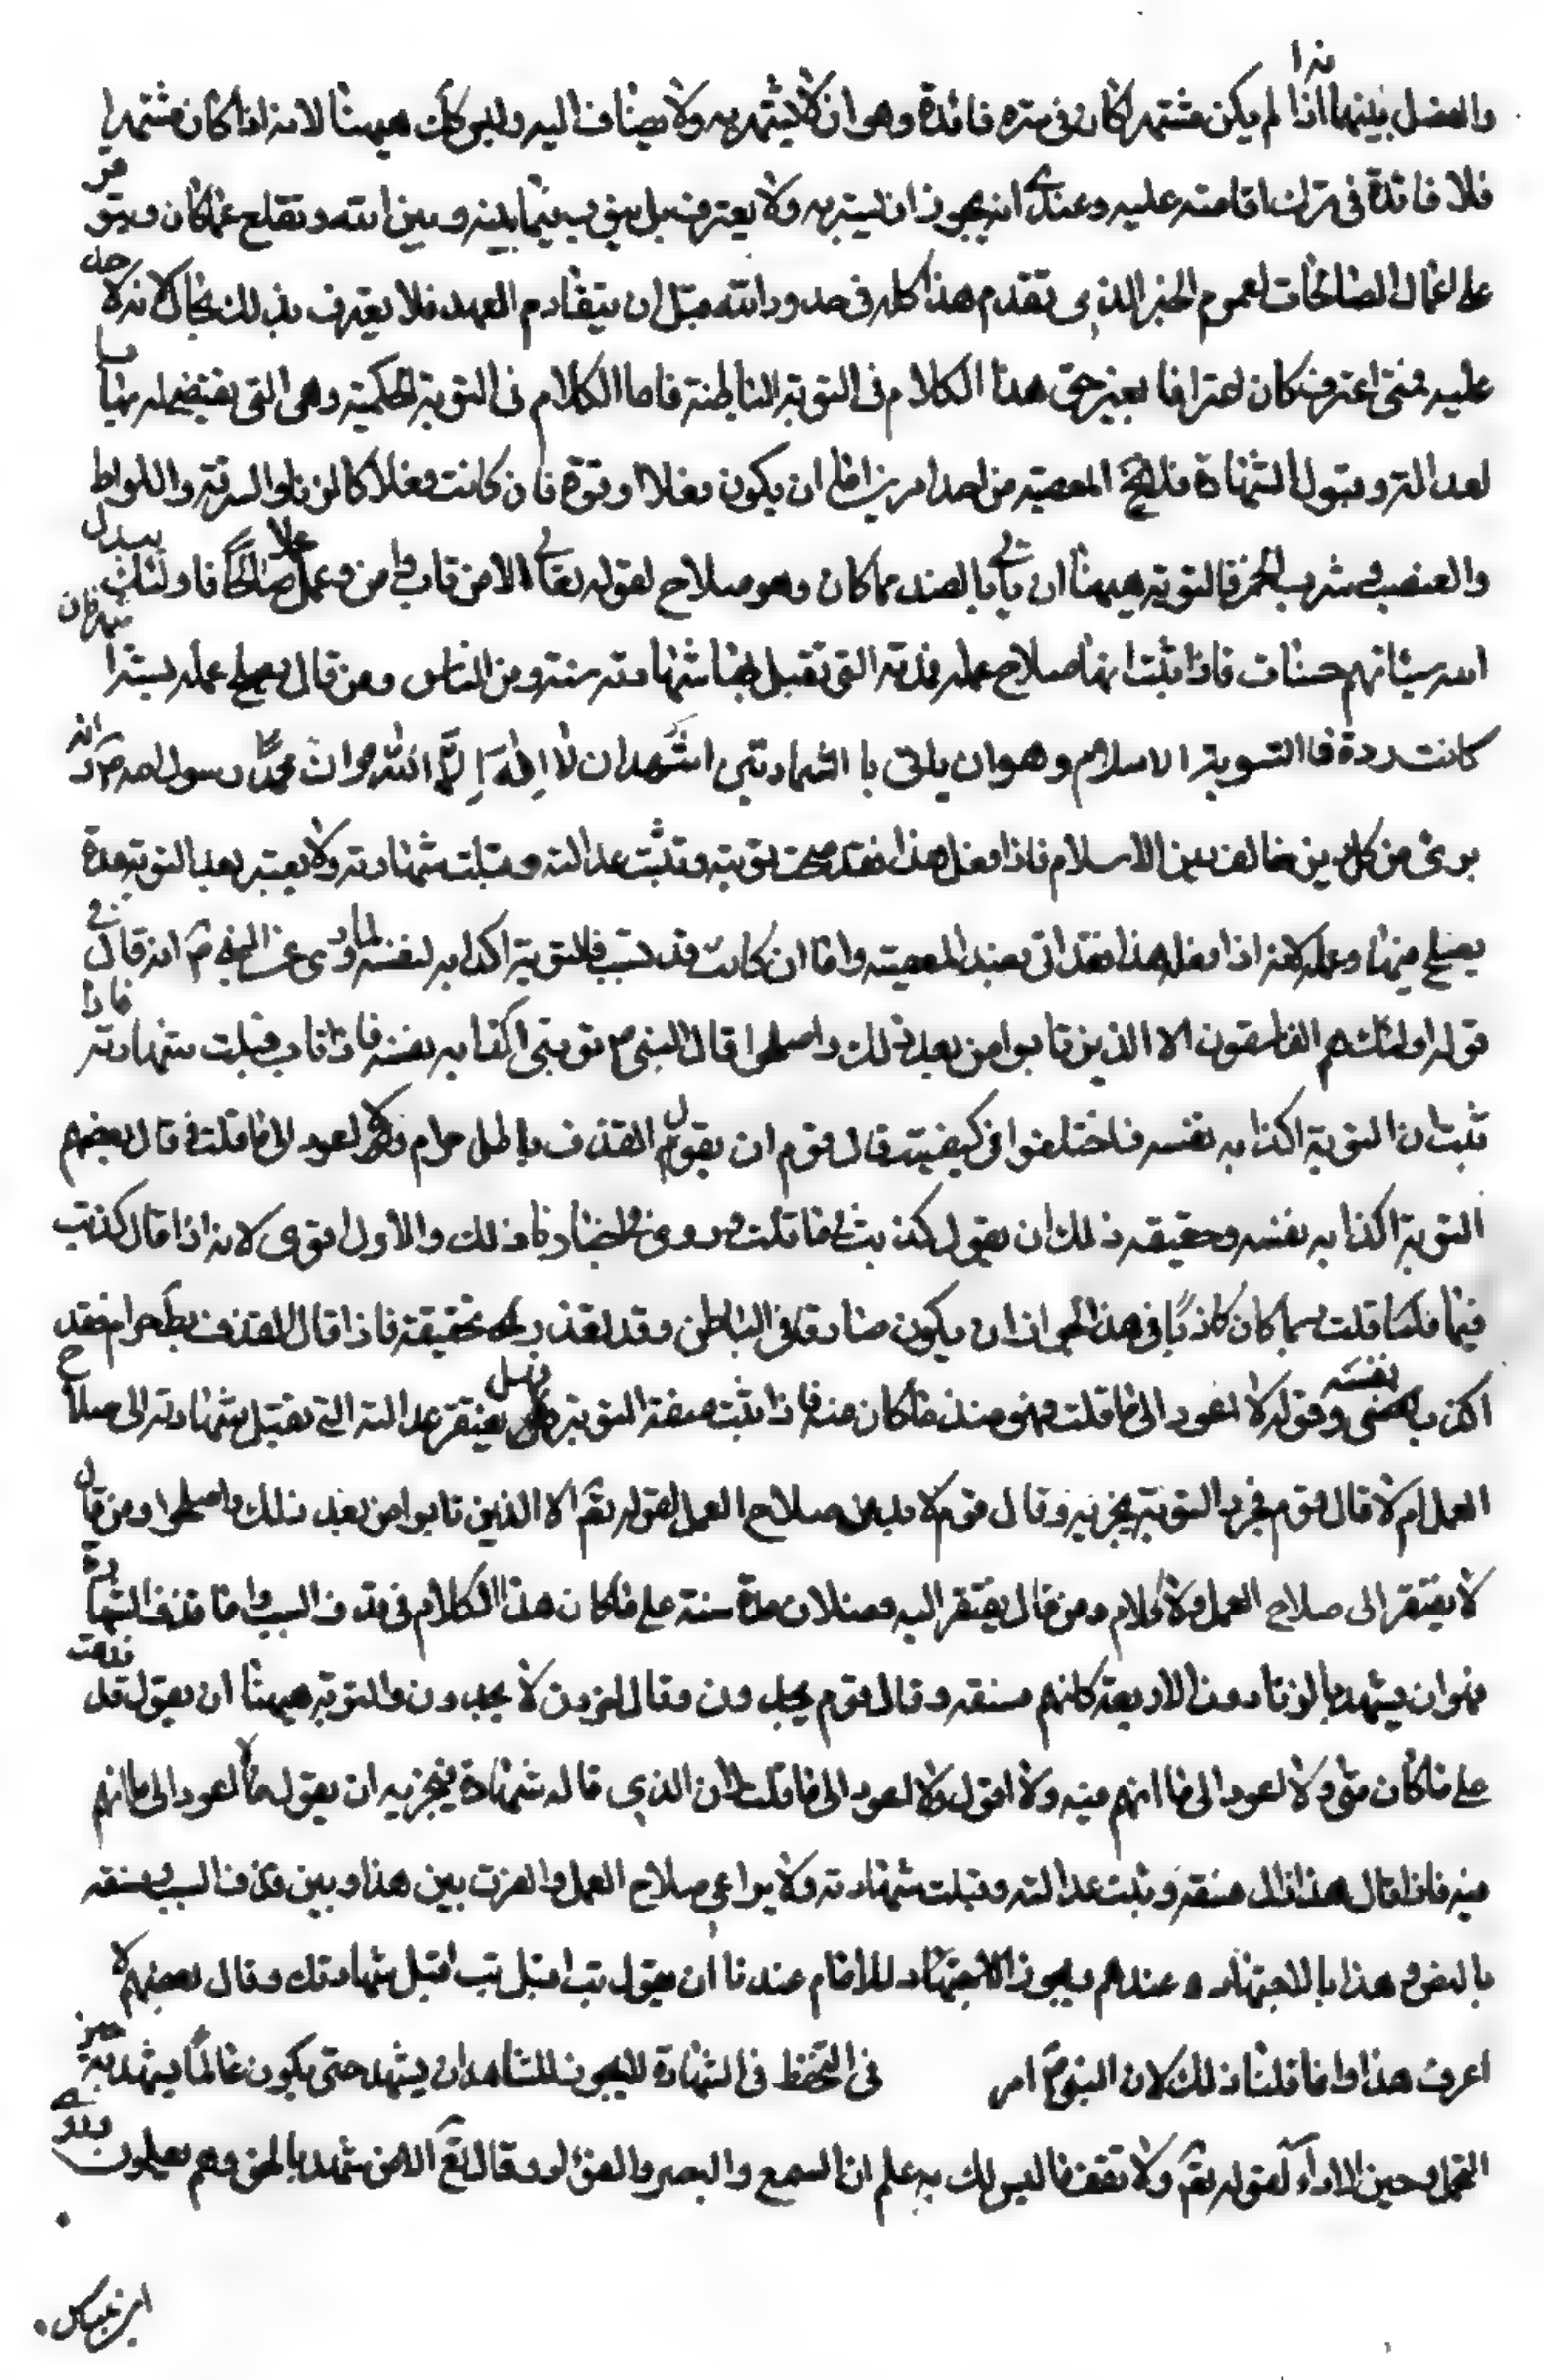 والفصل بينهما اذا لم يكن مشتهرا كان في ستره فائدة وهو ان لا يشتهر به ولا يضاف اليه وليس كك هيهنا لانه اذا كان مشتهرا
فلا فائدة في ترك اقامته عليه وعندي انه يجوز ان يستر به ولا يعترف بل يتوب فيما بينه وبين الله وتقلع عما كان ويتوفر
على اعمال الصالحات لعموم الخبر الذي تقدم هذا كله في حدود الله قبل ان يتقادم العهد فلا يعترف بذلك بحال لانه لا حد
عليه فمتى اعترف كان اعترافا بغير حق هذا الكلام في التوبة الباطنة فاما الكلام في التوبة الحكمية وهي التي يقتضي له بها
لعدالته وقبول الشهادة فلا تخ المعصية من احد امرين اما ان يكون فعلا او قوة فان كانت فعلا كالزنا والسرقة واللواط
والغصب وشرب الخمر فالتوبة هيهنا ان ياتي بالضد مما كان وهو صلاح لقوله تعالى الا من تاب وامن وعمل عملا صالحا فاولئك يبدل
الله سيئاتهم حسنات فاذا ثبت انها صلاح عمله فمدته التي تقبل بها شهادته سنة ومن الناس ومن قال يصلح عمله ستة اشهر فان
كانت ردة فاالتسوبة الاسلام وهو ان ياتى با الشهادتين اشهد ان لا اله الا الله وان محمدا رسول الله ص وانه
برئ من كل دين خالف دين الاسلام فاذا فعل هذا فقد صحت توبته وتثبت عدالته وقبلت شهادته ولا يعتبر بعد التوبة مدة
يصلح فيها وعمله لانه اذا فعل هذا فقد اتى بضد المعصية واما ان كانت قذف سب فالتوبة اكذابه لنفسه لما روى عن النبي ص انه قال في
قوله اولئك هم الفاسقون الا الذين تابوا من بعد ذلك واصلحوا قال النبي ص توبتى اكذابه نفسه فاذا تاب قبلت شهادته فاذا
ثبت ان التوبة اكذابه نفسه فاختلفوا في كيفيته قال قوم ان يقول القذف باطل حرام ولا اعود الى ما قلت وقال بعضهم
التوبة اكذابه نفسه وحقيقة ذلك ان يقول كذبت فيما قلت وروى في اخبارنا ذلك والاول اقوى لانه اذا قال كذبت
فيما قلت ربما كان كاذبا في هذا لجواز ان يكون صادقا في الباطن وقد تعذر عليه تحقيقه فاذا قال القذف بط حرام فقد
اكذب نفسه وقوله لا اعود الى ما قلت فهو ضد ما كان منه فاذا ثبت صفة التوبة فهل يفتقر عدالته التي تقبل شهادته الى صلاح
العمل ام لا قال قوم مجرد التوبة يجزيه وقال قوم لا بد من صلاح العمل لقوله تع الا الذين تابوا من بعد ذلك واصلحوا ومن قال
لا يفتقر الى صلاح العمل فلا كلام ومن قال يفتقر اليه فصلاح مدة سنة على ما كان هذا الكلام في قذف السب واما قذف الشهادة
فهو ان يشهد بالزنا دون الاربعة كانهم فسقه وقال قوم يحدون وقال اخرون لا يحدون والتوبة هيهنا ان يقول قد ندمت
على ما كان منى ولا اعود الى ما اتهم فيه ولا اقول ولا اعود الى ما قلت لان الذي قاله شهادة فيجزيه ان يقول لا اعود الى ما اتهم
فيه فاذا قال هذا زال فسقه وثبت عدالته وقبلت شهادته ولا يراعى صلاح العمل والفرق بين هذا وبين قذف السب فسقه
بالنص وهذا بالاجتهاد وعندهم ويجوز الاجتهاد للامام عندنا ان يقول تب اقبل تب اقبل شهادتك وقال بعضهم لا
اعرف هذا وانما قلنا ذلك لان النبي ص امر في التحفظ في الشهادة لا يجوز للشاهد ان يشهد حتى يكون عالما يشهد به حين
التحمل وحين الاداء لقوله تع ولا تقف ما ليس لك به علم ان السمع والبصر والفؤاد وقال تع الا من شهد بالحق وهم يعلمون وروى
ابن عباس